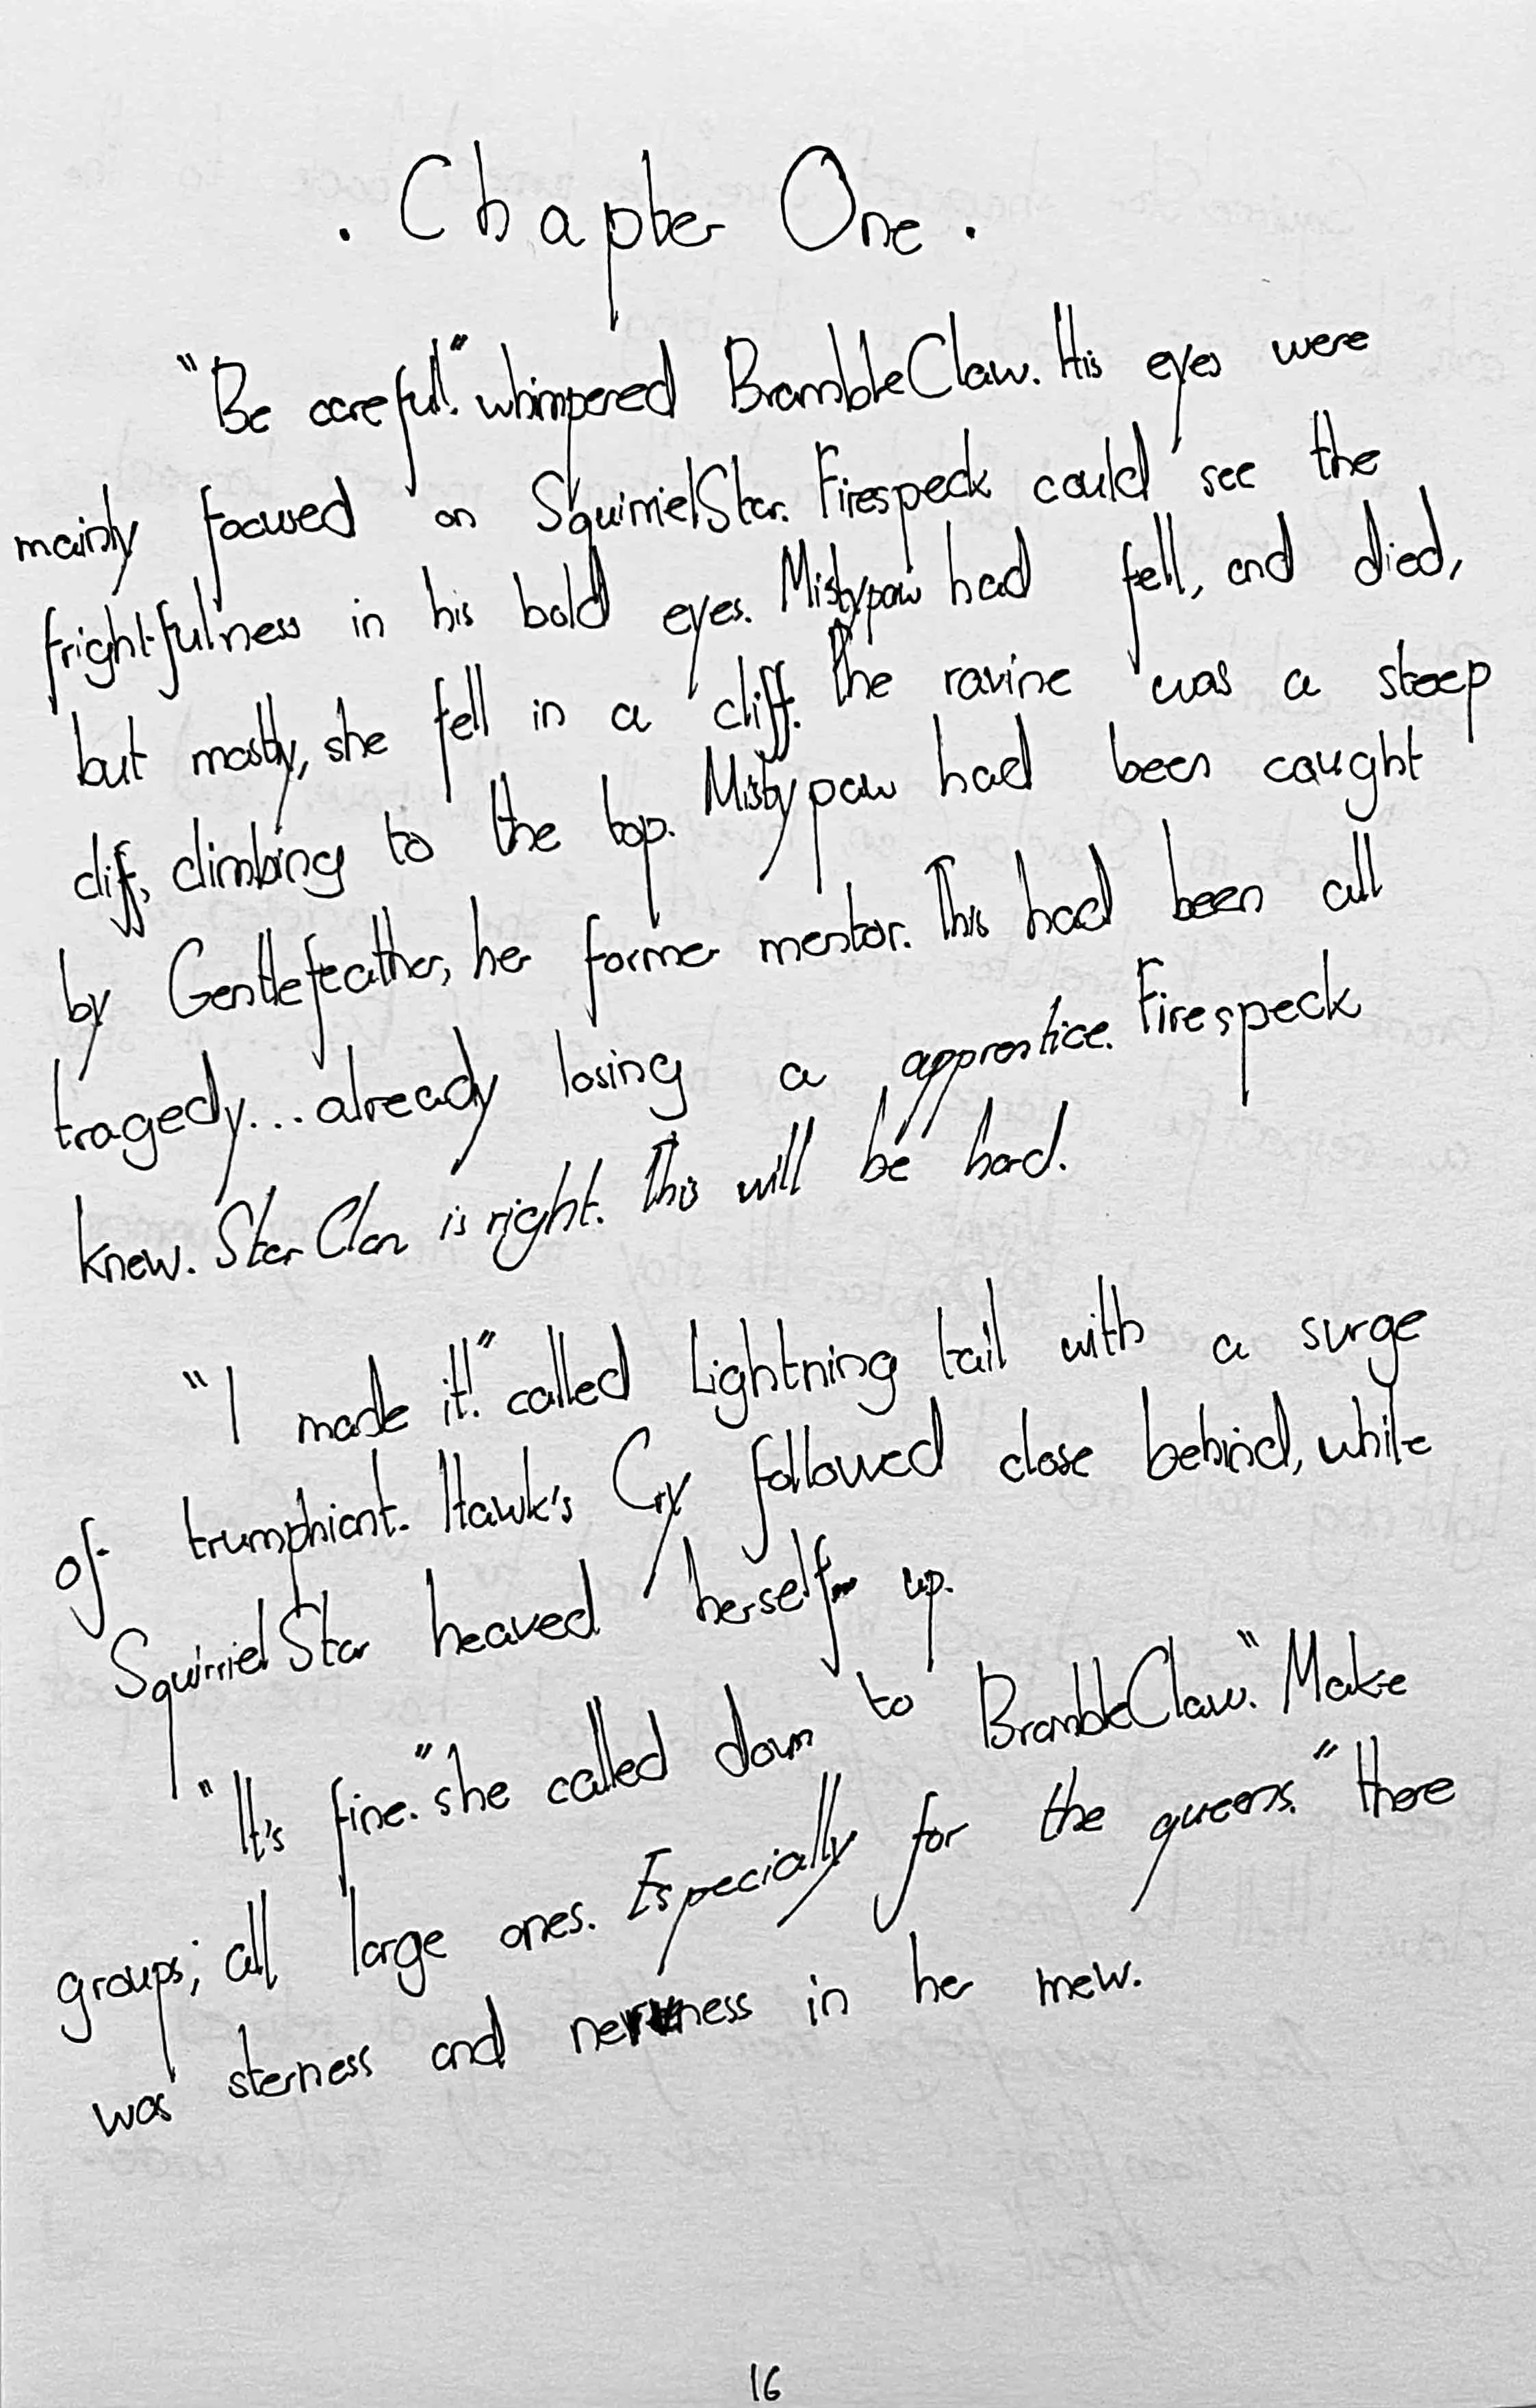 . Chapter One .
"Be careful!" whimpered BrambleClaw. His eyes were
mainly focused on SquirrielStar. Firespeck could see the
frightfulness in his bold eyes. Mistypaw had fell, and died,
but mostly, she fell in a cliff. The ravine was a steep
cliff, climbing to the top. Mistypaw had been caught
by Gentlefeather, her former mentor. This had been all
tragedy... already losing a apprentice. Firespeck
knew. StarClan is right. This will be hard.
"I made it!" called Lightning tail with a surge
of trumphiant. Hawk's Cry followed close behind, while
SquirrielStar heaved herself up.
"It's fine." she called down to BrambleClaw. "Make
groups; all large ones. Especially for the queens." there
was sterness and nerveness in her mew.
16